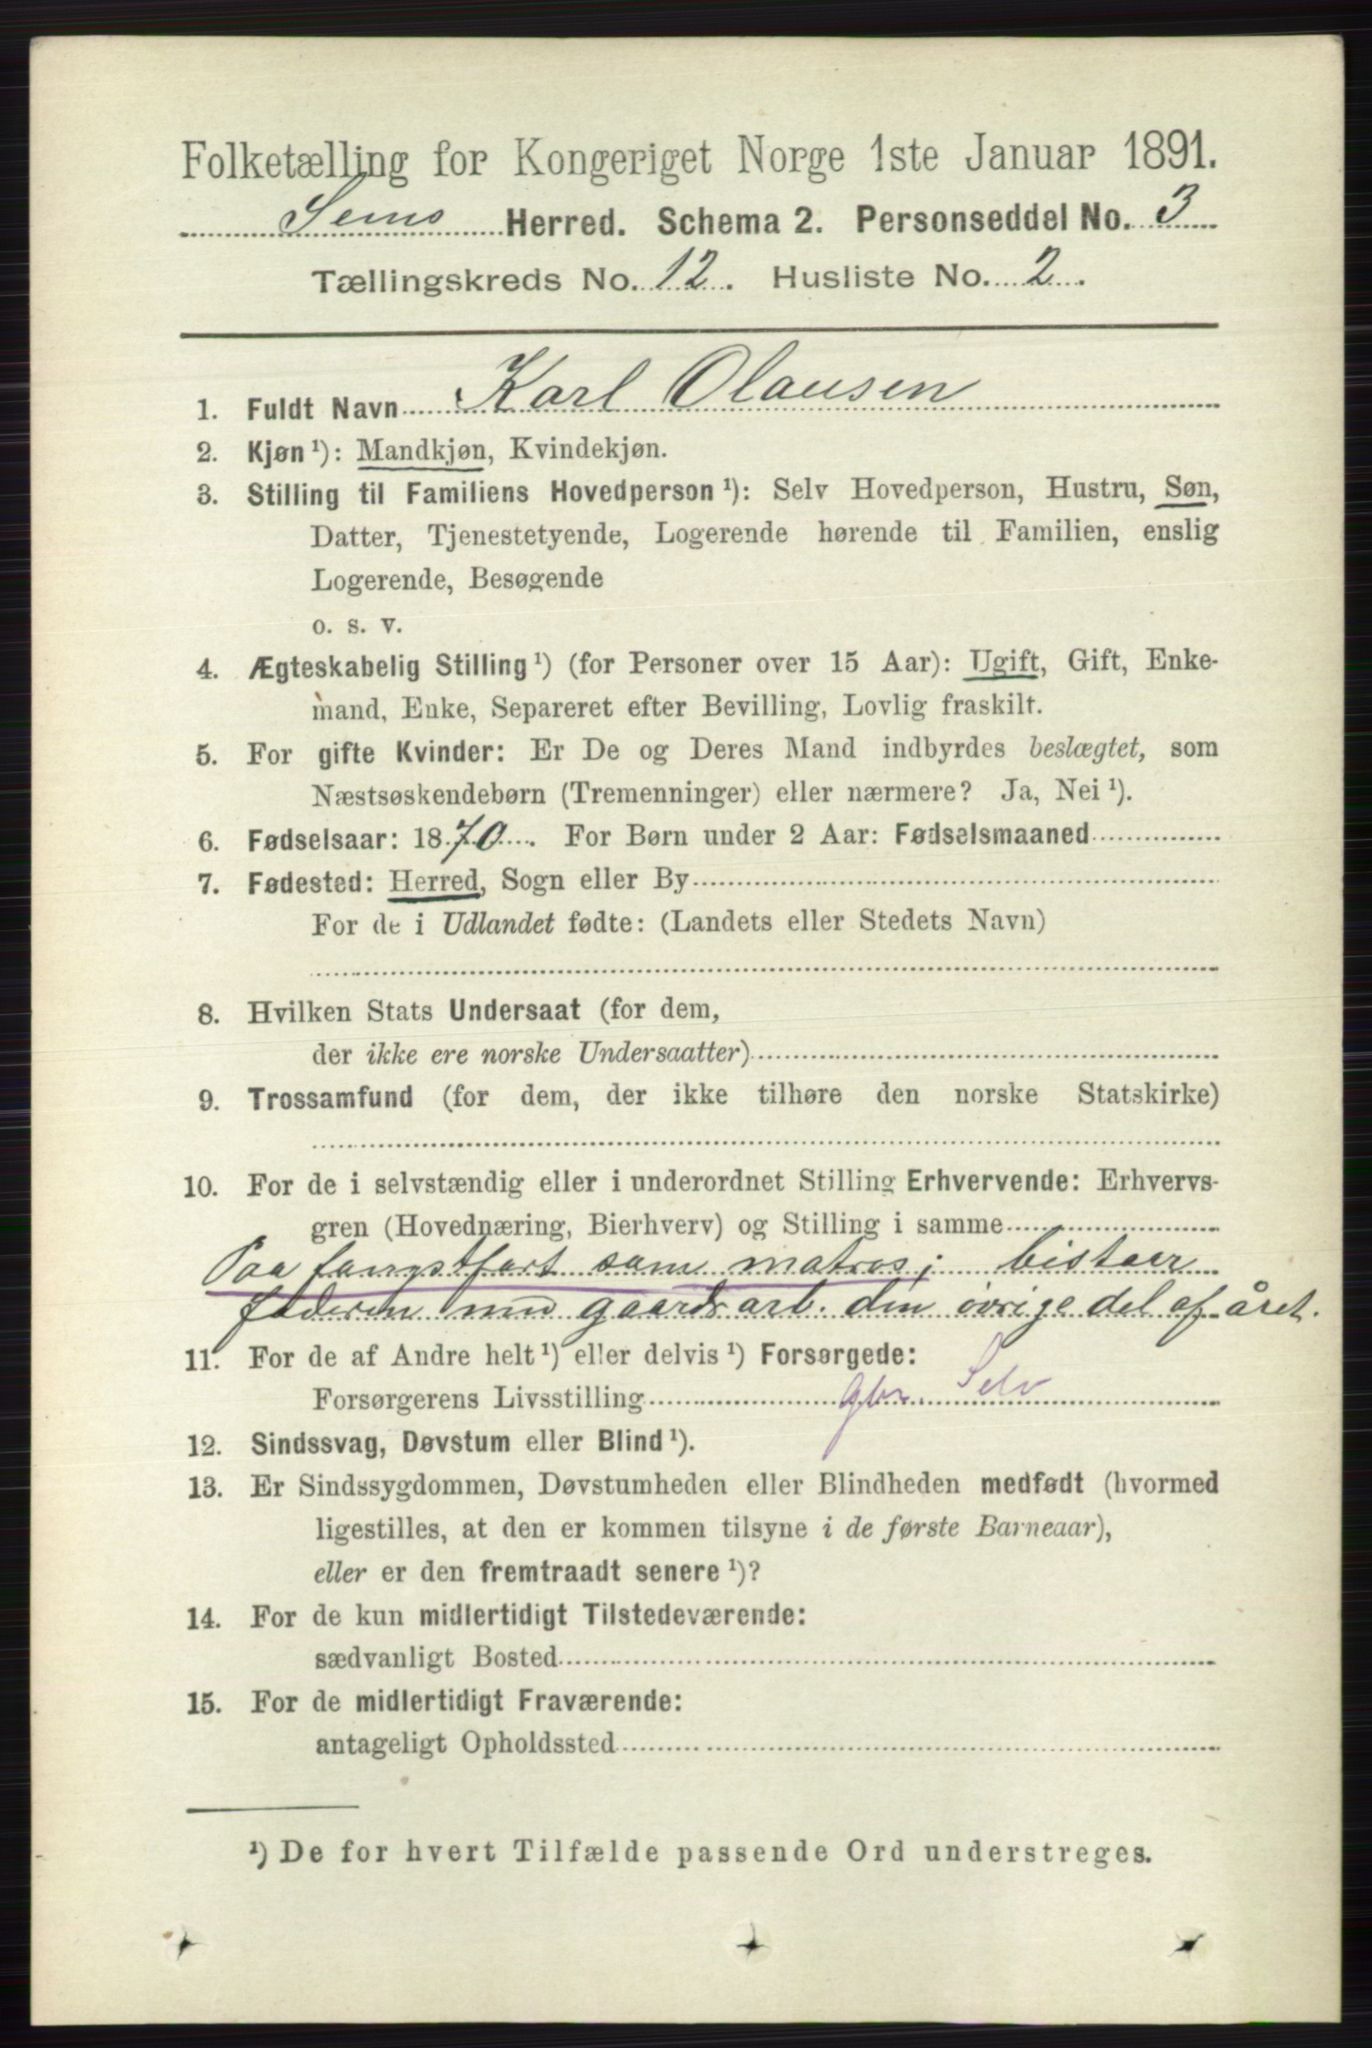 Folketælling for Kongeriget Norge 1ste Januar 1891.
Sems Herred. Schema 2. Personseddel No. 3
Tællingskreds No. 12. Husliste No. 2.
1. Fuldt Navn Karl Olausen
2. Kjøn ¹): Mandkjøn, Kvindekjøn.
3. Stilling til Familiens Hovedperson ¹): Selv Hovedperson, Hustru, Søn,
Datter, Tjenestetyende, Logerende hørende til Familien, enslig
Logerende, Besøgende
o. s. v.
4. Ægteskabelig Stilling ¹) (for Personer over 15 Aar): Ugift, Gift, Enke-
mand, Enke, Separeret efter Bevilling, Lovlig fraskilt.
5. For gifte Kvinder: Er De og Deres Mand indbyrdes beslægtet, som
Næstsøskendebørn (Tremenninger) eller nærmere? Ja, Nei ¹).
6. Fødselsaar: 1870. For Børn under 2 Aar: Fødselsmaaned
7. Fødested: Herred, Sogn eller By
For de i Udlandet fødte: (Landets eller Stedets Navn)
8. Hvilken Stats Undersaat (for dem,
der ikke ere norske Undersaatter)
9. Trossamfund (for dem, der ikke tilhøre den norske Statskirke)
10. For de i selvstændig eller i underordnet Stilling Erhvervende: Erhvervs-
gren (Hovednæring, Bierhverv) og Stilling i samme
Paa fangstfart som matros; bistaar
faderen med gaardsarb. den øvrige del af året.
11. For de af Andre helt ¹) eller delvis ¹) Forsørgede:
Forsørgerens Livsstilling gbr. Selv
12. Sindssvag, Døvstum eller Blind ¹).
13. Er Sindssygdommen, Døvstumheden eller Blindheden medfødt (hvormed
ligestilles, at den er kommen tilsyne i de første Barneaar),
eller er den fremtraadt senere ¹)?
14. For de kun midlertidigt Tilstedeværende:
sædvanligt Bosted
15. For de midlertidigt Fraværende:
antageligt Opholdssted
¹) De for hvert Tilfælde passende Ord understreges.